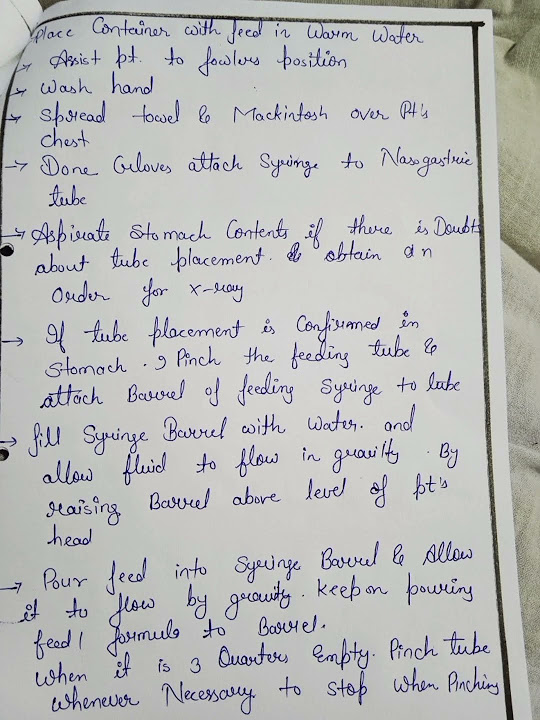 place Container with feed in Warm Water
→ Assist pt. to fowlers position
→ Wash hand
→ Spread towel & Mackintosh over Pt's
chest
→ Done Gloves attach Syringe to Nasogastric
tube
→ Aspirate Stomach Contents if there is Doubts
about tube placement. & obtain an
Order for x-ray
→ If tube placement is Confirmed in
Stomach. I Pinch the feeding tube &
attach Barrel of feeding Syringe to tube
→ fill Syringe Barrel with Water. and
allow fluid to flow in gravilty. By
raising Barrel above level of pt's
head
→ Pour feed into Syringe Barrel & Allow
it to flow by gravity. Keep on pouring
feed / formula to Barrel.
When it is 3 Quarters Empty. Pinch tube
Whenever Necessary to Stop When Pinching